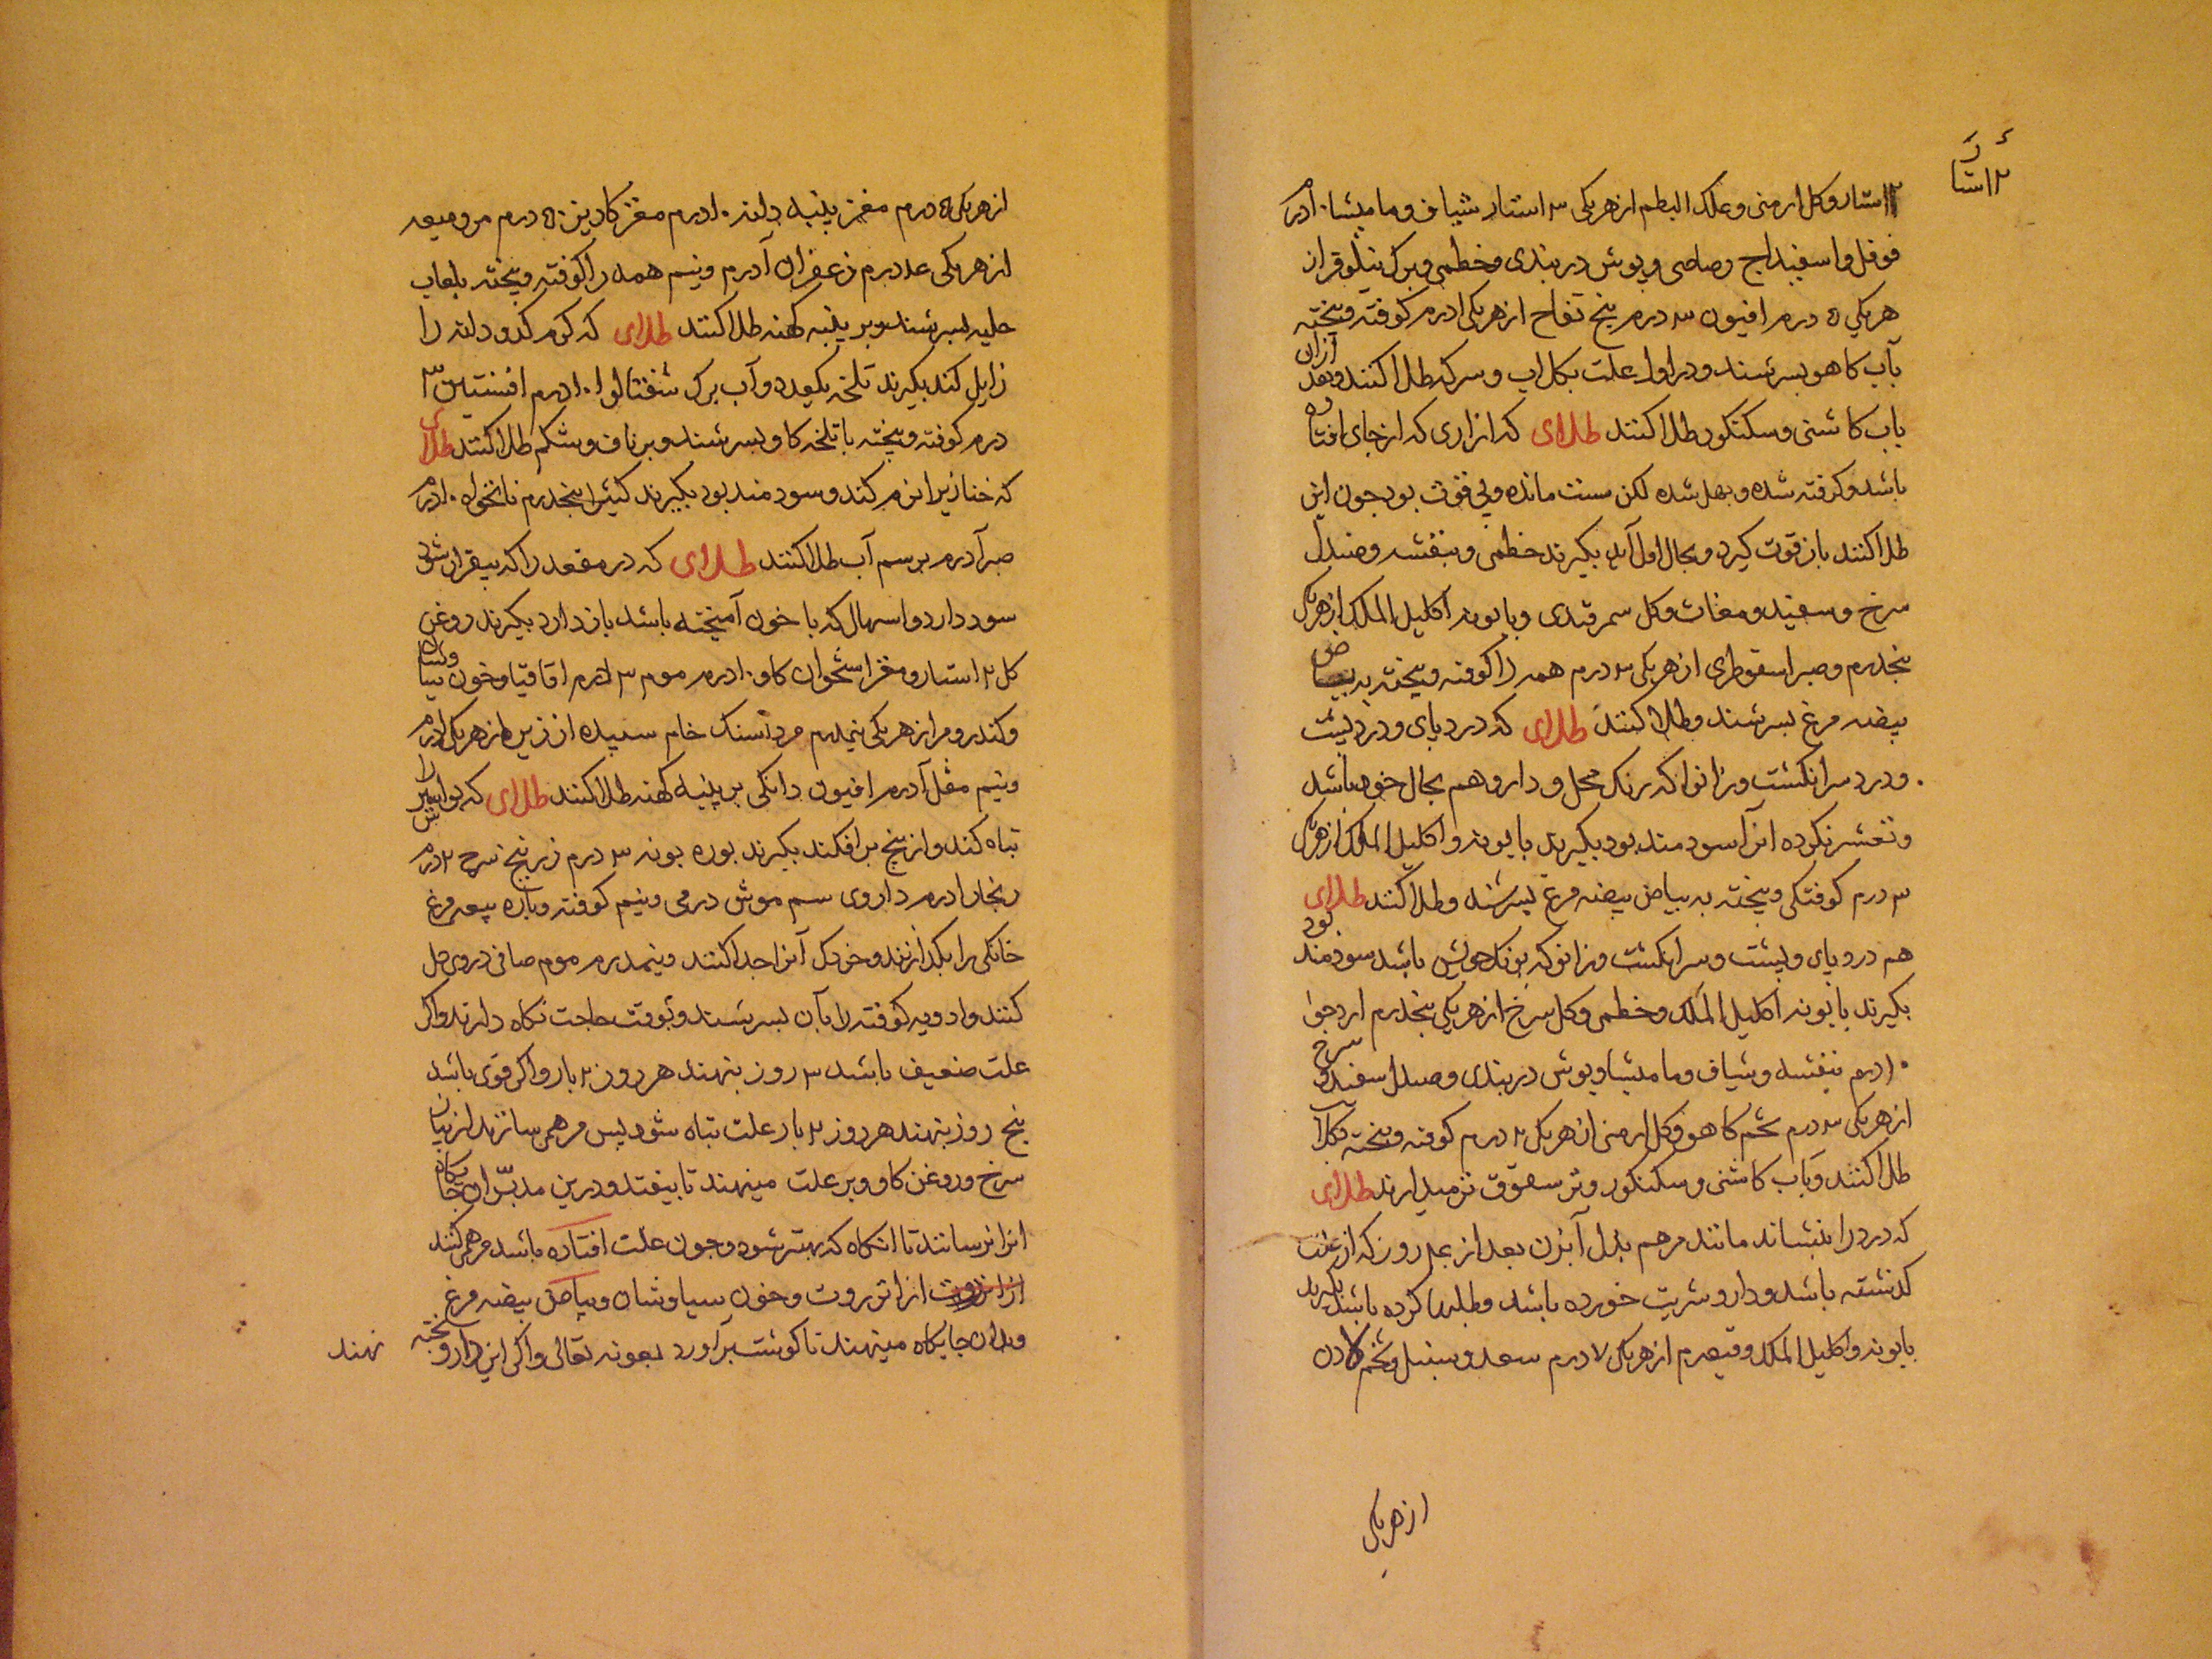 ۲ استار
۲ استار و کل ارمنی و علک البطم از هریکی ۳ استار شیاف و مامیثا ۱۰ درم
فوفل و اسفیداج رصاصی و پوش دربندی و خطمی و برک نیلوفر از
هریکی ۵ درم افیون ۳ درم بیخ تفاح از هریکی ا درم کوفته و بیخته
بآب کاهو بسرشند و در اول علت بکلاب و سرکه طلا کنند و بعد ازان
باب کاشنی و سکنکور طلا کنند طلاای که ازاری که از جای افتاده
باشد و کرفته شده و بهل شده لکن سست مانده و بی قوت بود جون این
طلا کنند باز قوت کیرد و بحال اول آید بکیرند خطمی و بنفشه و صندل
سرخ و سفید و مغاث و کل سمرقندی و بابونه اکلیل الملک از هریکی
پنجدرم و صبر اسقوطری از هریکی ۳ درم همه را کوفته و بیخته به بیاض
بیضه مرغ بسرشند و طلا کنند طلاای که درد پای و درد پشت
و درد سر انکشت و زانو که برنک محل و دارو هم بحال خود باشد
و تغیر نکرده انرا سودمند بود بکیرند بابونه و اکلیل الملک از هریکی
۳ درم کوفتکی و بیخته به بیاض بیضه مرغ بسرشند و طلا کنند طلاای
هم درد پای و پشت و سر انکشت و زانو که برنک خویش باشد سودمند بود
بکیرند بابونه اکلیل الملک و خطمی و کل سرخ از هریکی پنجدرم
۱۰ درم بنفشه و شیاف و مامیثا و پوش دربندی و صندل سفید و سرخ
از هریکی ۳ درم تخم کاهو و کل ارمنی از هریکی ۲ درم کوفته و بیخته بکلاب
طلا کنند و باب کاشنی و سکنکور و تر میدارند طلاای
که درد را بنشاند مانند مرهم بدل آبزن بعد از روز که از علت
کذشته باشد و دارو شربت خورده باشد و طلیها کرده باشد بکیرند
بابونه و اکلیل الملک و قیصوم از هریکی ۷ درم سعد و سنبل و تخم لادن
از هریکی
از هریکی ۵ درم مغز پنبه دانه ۱۰ درم مغز ۵ درم مر و میعه
از هریکی درم زعفران ا درم و نیم همه را کوفته و بیخته بلعاب
حلبه بسرشند و بر پنبه کهنه طلا کنند طلاای که کرم کدو دانه را
زایل کند بکیرند تلخه یکعدد و آب برک شفتالو ۱۰ درم افسنتین ۳
درم کوفته و بیخته با تلخه کاو بسرشند و بر ناف و شکم طلا کنند طلاای
که خنازیر را نرم کند و سودمند بود بکیرند کتیرا پنجدرم نانخواه ۱۰ درم
صبر ا درم برسم آب طلا کنند طلاای که در مقعد را که بیقرار شود
سود دارد و اسهال که با خون آمیخته باشد باز دارد بکیرند روغن
کل ۲ استار و مغز استخوان کاو ۱۰ درم موم ۳ درم اقاقیا و خون سیاوشان
و کندر و مر از هریکی نیمدرم مرداسنک خام سپیده ارزیز از هریکی ا درم
و نیم مقل ا درم افیون دانکی بر پنبه کهنه طلا کنند طلاای که بواسیر را
تباه کند و از بیخ بر افکند بکیرند بوره بونه ۳ درم زرنیخ سرخ ۲ درم
زنجار ا درم داروی سم موش درمی و نیم کوفته و پاره پیه مرغ
خانکی را بکدازند و خردک آنرا جدا کنند و نیمدرم موم صافی دروی حل
کنند و ادویه کوفته را بآن بسرشند و بوقت حاجت نکاه دارند و اکر
علت ضعیف باشد ۳ روز بنهند هر روز ۲ بار و اکر قوی باشد
پنج روز بنهند هر روز ۲ بار علت تباه شود پس مرهمی سازند از پیاز
سرخ و روغن کاو و بر علت مینهند تا بیفتد و درین مدت بران جایکاه
انرا نرسانند تا انکاه که بهتر شود و جون علت افتاده باشد مرهمی کنند
از انزروت و خون سیاوشان و بیاض بیضه مرغ
و بدان جایکاه مینهند تا کوشت برآورد بعونه تعالی و اکر این دارو پخته
نهند